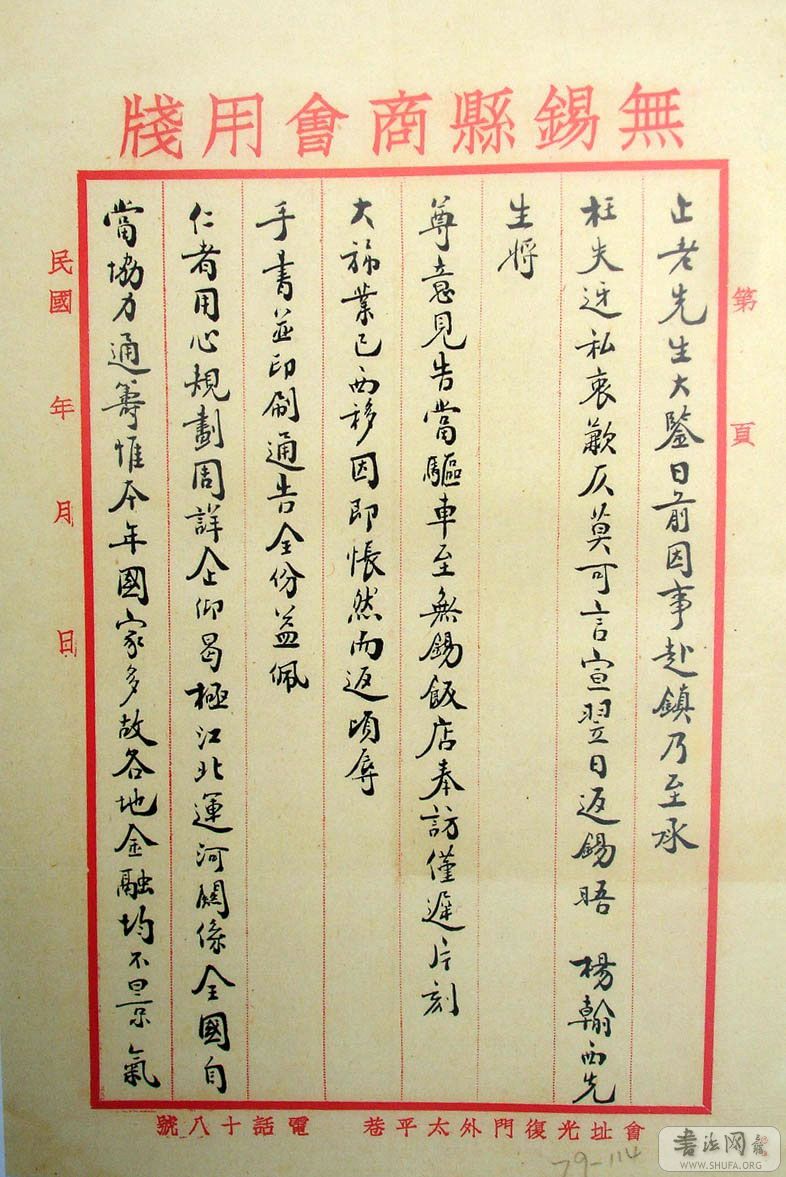 無錫縣商會用牋
第 頁
止老先生大鑒日前因事赴鎮乃至承
枉失迓私衷歉仄莫可言宣翌日返錫晤 楊翰西先
生將
尊意見告當驅車至無錫飯店奉訪僅遲片刻
大旆業已西移因即悵然而返頃辱
手書並印刷通告全份益佩
仁者用心規劃周詳企仰曷極江北運河關係全國自
當協力通籌惟今年國家多故各地金融均不景氣
民國 年 月 日
會址光復門外太平巷 電話十八號
79-114
書法网
WWW.SHUFA.ORG